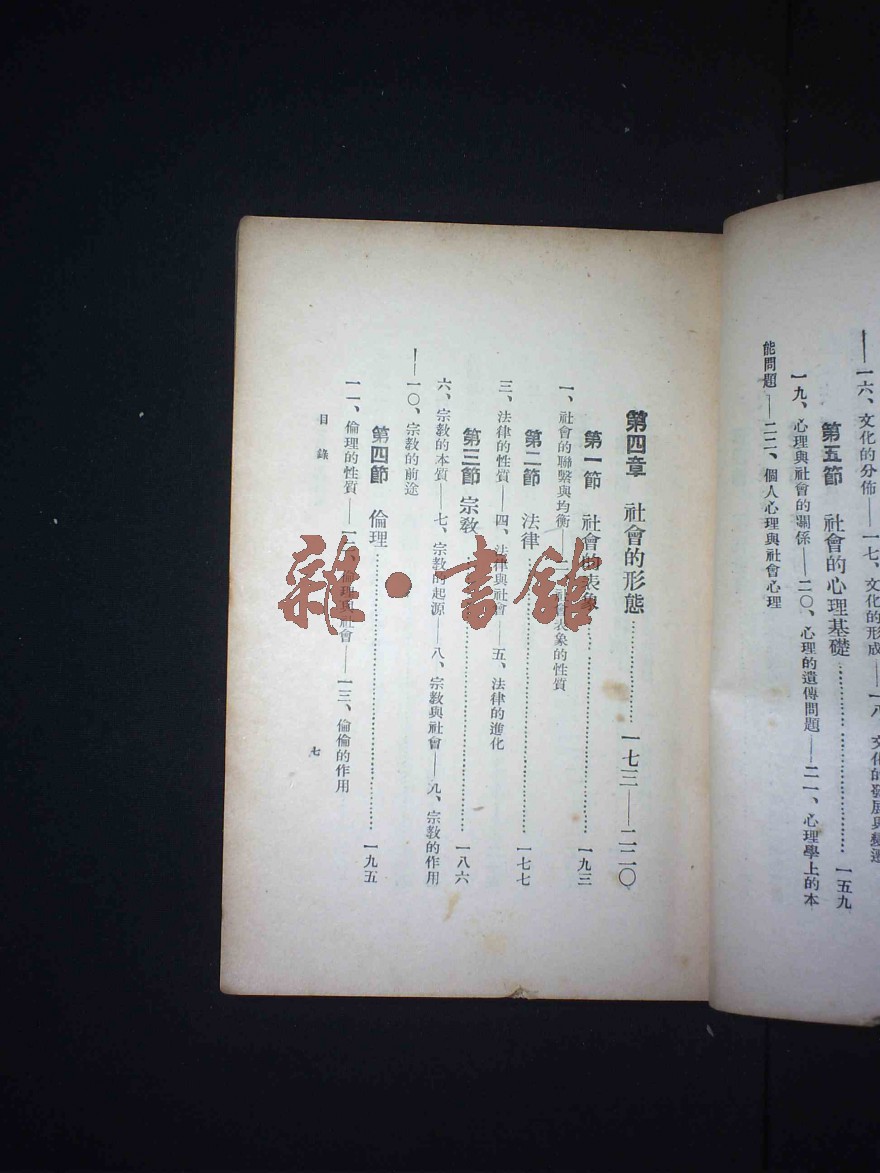 ——一六、文化的分佈——一七、文化的形成——一八、文化的發展與變遷
第五節　社會的心理基礎……一五九
一九、心理與社會的關係——二〇、心理的遺傳問題——二一、心理學上的本
能問題——二二、個人心理與社會心理
第四章　社會的形態……一七三——二二〇
第一節　社會的表象……一九三
一、社會的聯繫與均衡——二、社會表象的性質
第二節　法律……一七七
三、法律的性質——四、法律與社會——五、法律的進化
第三節　宗教……一八六
六、宗教的本質——七、宗教的起源——八、宗教與社會——九、宗教的作用
——一〇、宗教的前途
第四節　倫理……一九五
一一、倫理的性質——一二、倫理與社會——一三、倫倫的作用
目錄
七
雜·書館